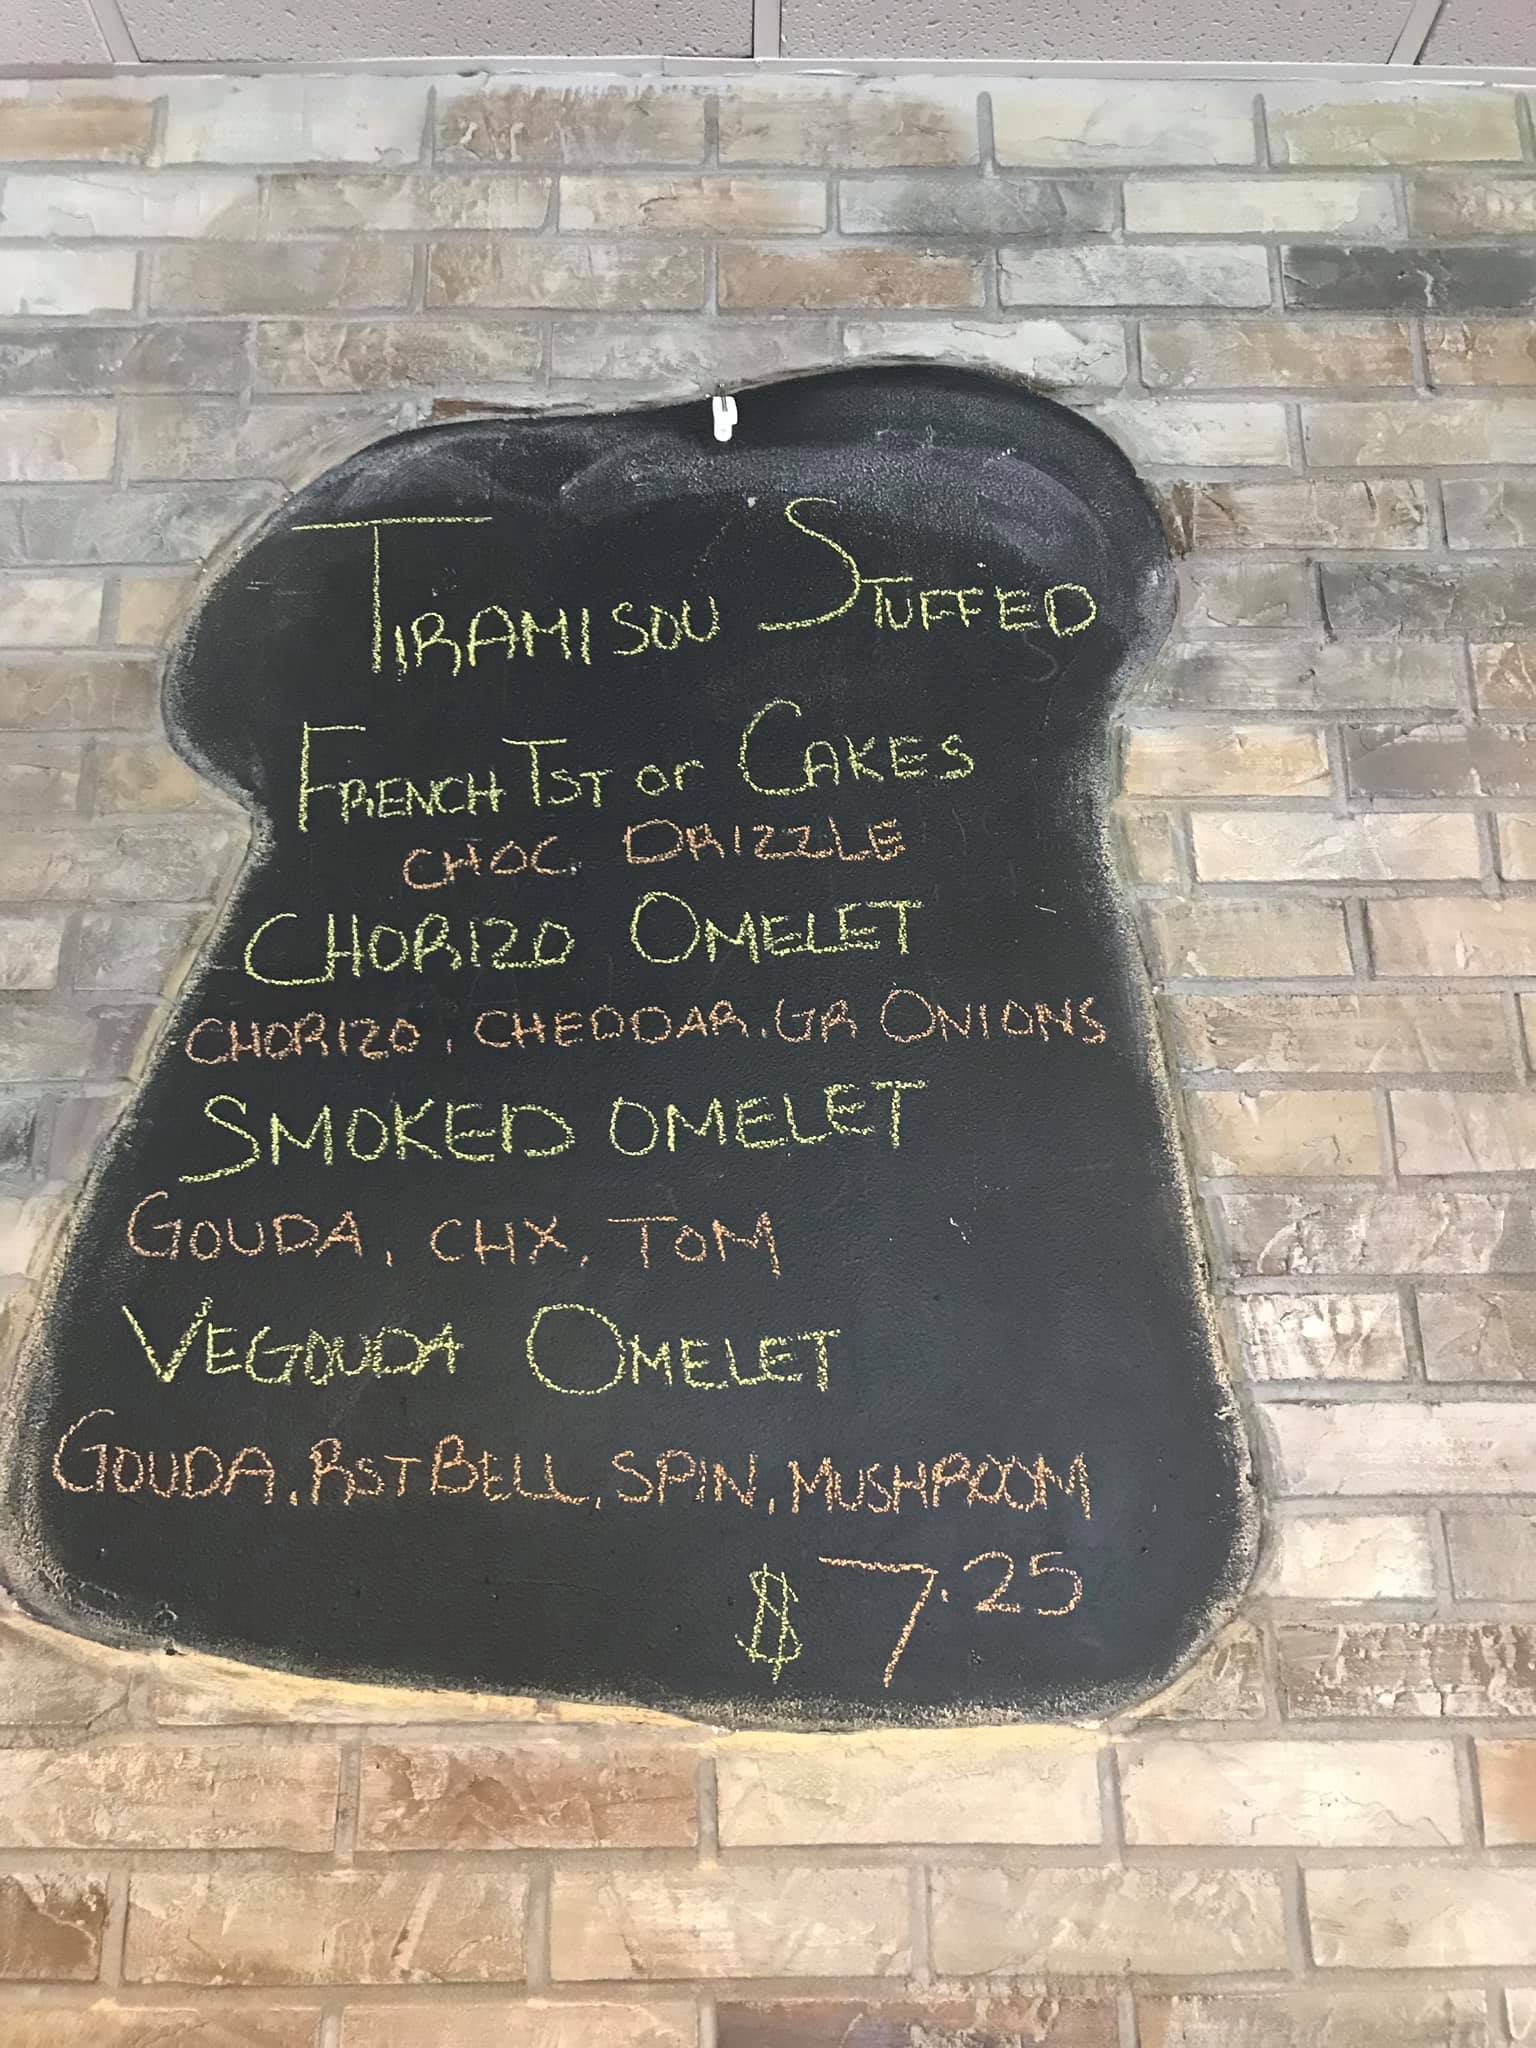 TIRAMISOU STUFFED
FRENCH TST or CAKES
CHOC. DRIZZLE
CHORIZO OMELET
CHORIZO, CHEDDAR, GR ONIONS
SMOKED OMELET
GOUDA, CHX, TOM
VEGOUDA OMELET
GOUDA, RST BELL, SPIN, MUSHROOM
$7.25